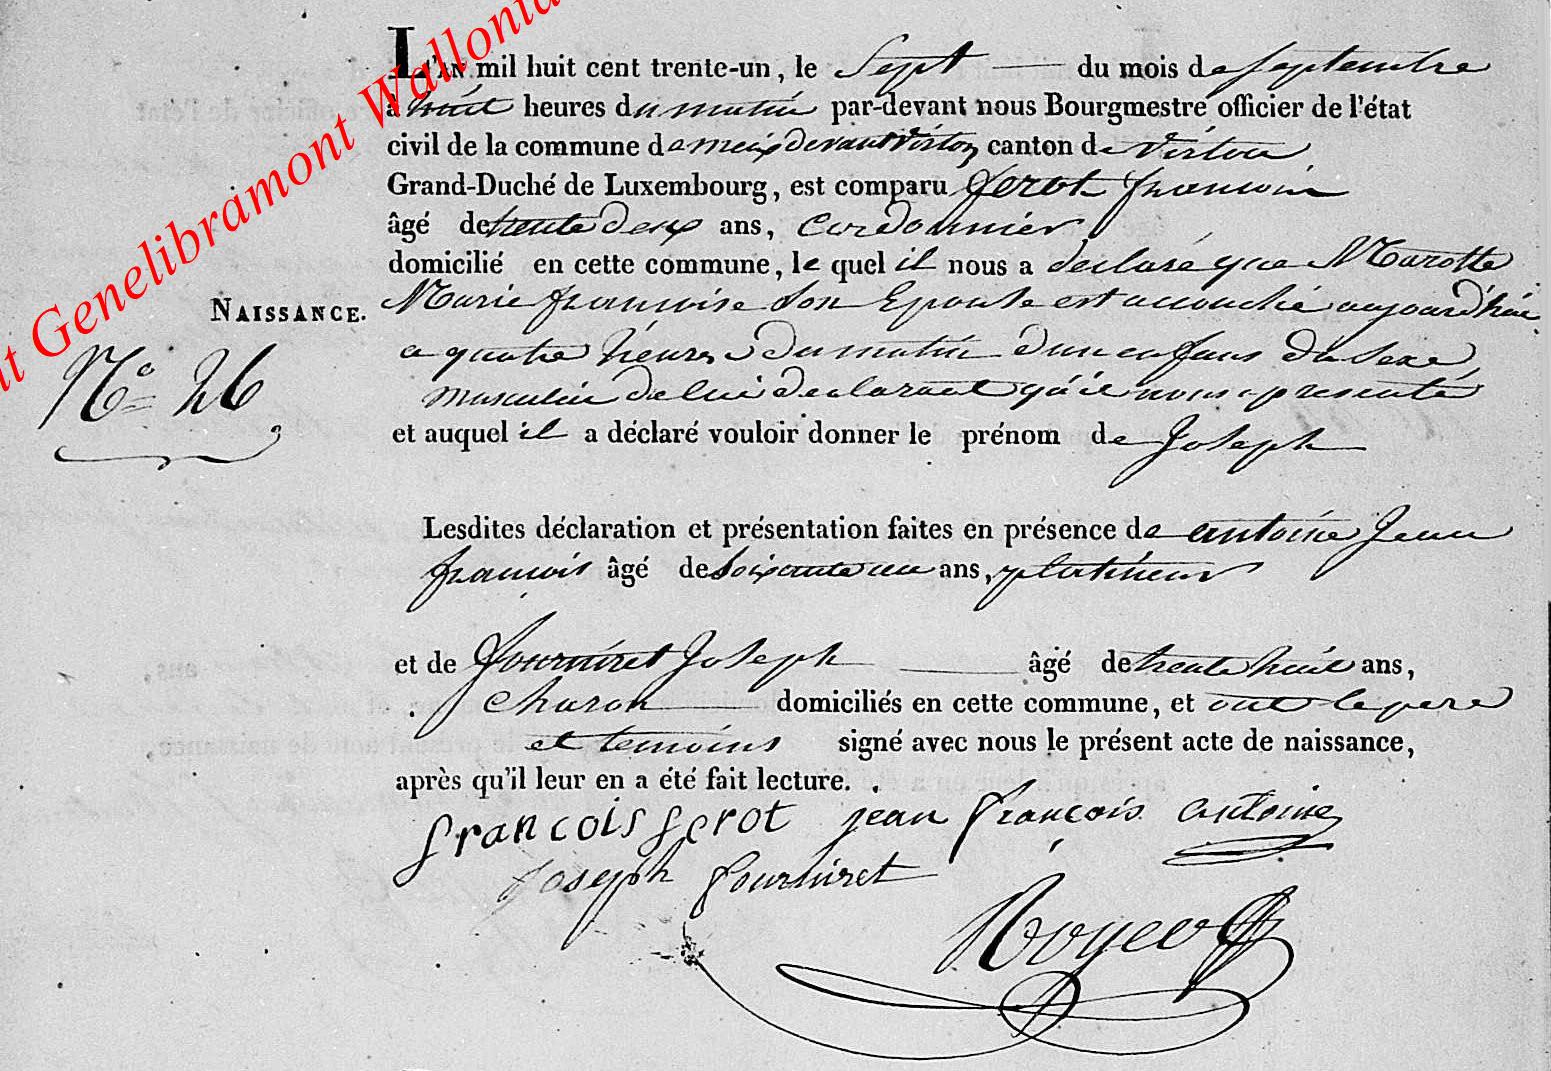 nt Genelibramont Wallonia
L'AN mil huit cent trente-un, le Sept du mois de Septembre
à huit heures du matin par-devant nous Bourgmestre officier de l'état
civil de la commune de meix devant virton canton de virton
Grand-Duché de Luxembourg, est comparu ferot francois
âgé de trente deux ans, cordonnier
domicilié en cette commune, le quel il nous a déclaré que Marotte
NAISSANCE. Marie francoise Son Epouse est accouchée aujourd'hui
N° 26 a quatre heures du matin d'un enfans du Sexe
masculin de lui declarant qu'il nous a presenté
et auquel il a déclaré vouloir donner le prénom de Joseph
Lesdites déclaration et présentation faites en présence de antoine Jean
francois âgé de Soixante un ans, platineur
et de fourniret Joseph âgé de trente huit ans,
charon domiciliés en cette commune, et ont le pere
et temoins signé avec nous le présent acte de naissance,
après qu'il leur en a été fait lecture.
francois ferot jean françois antoine
Joseph fourniret